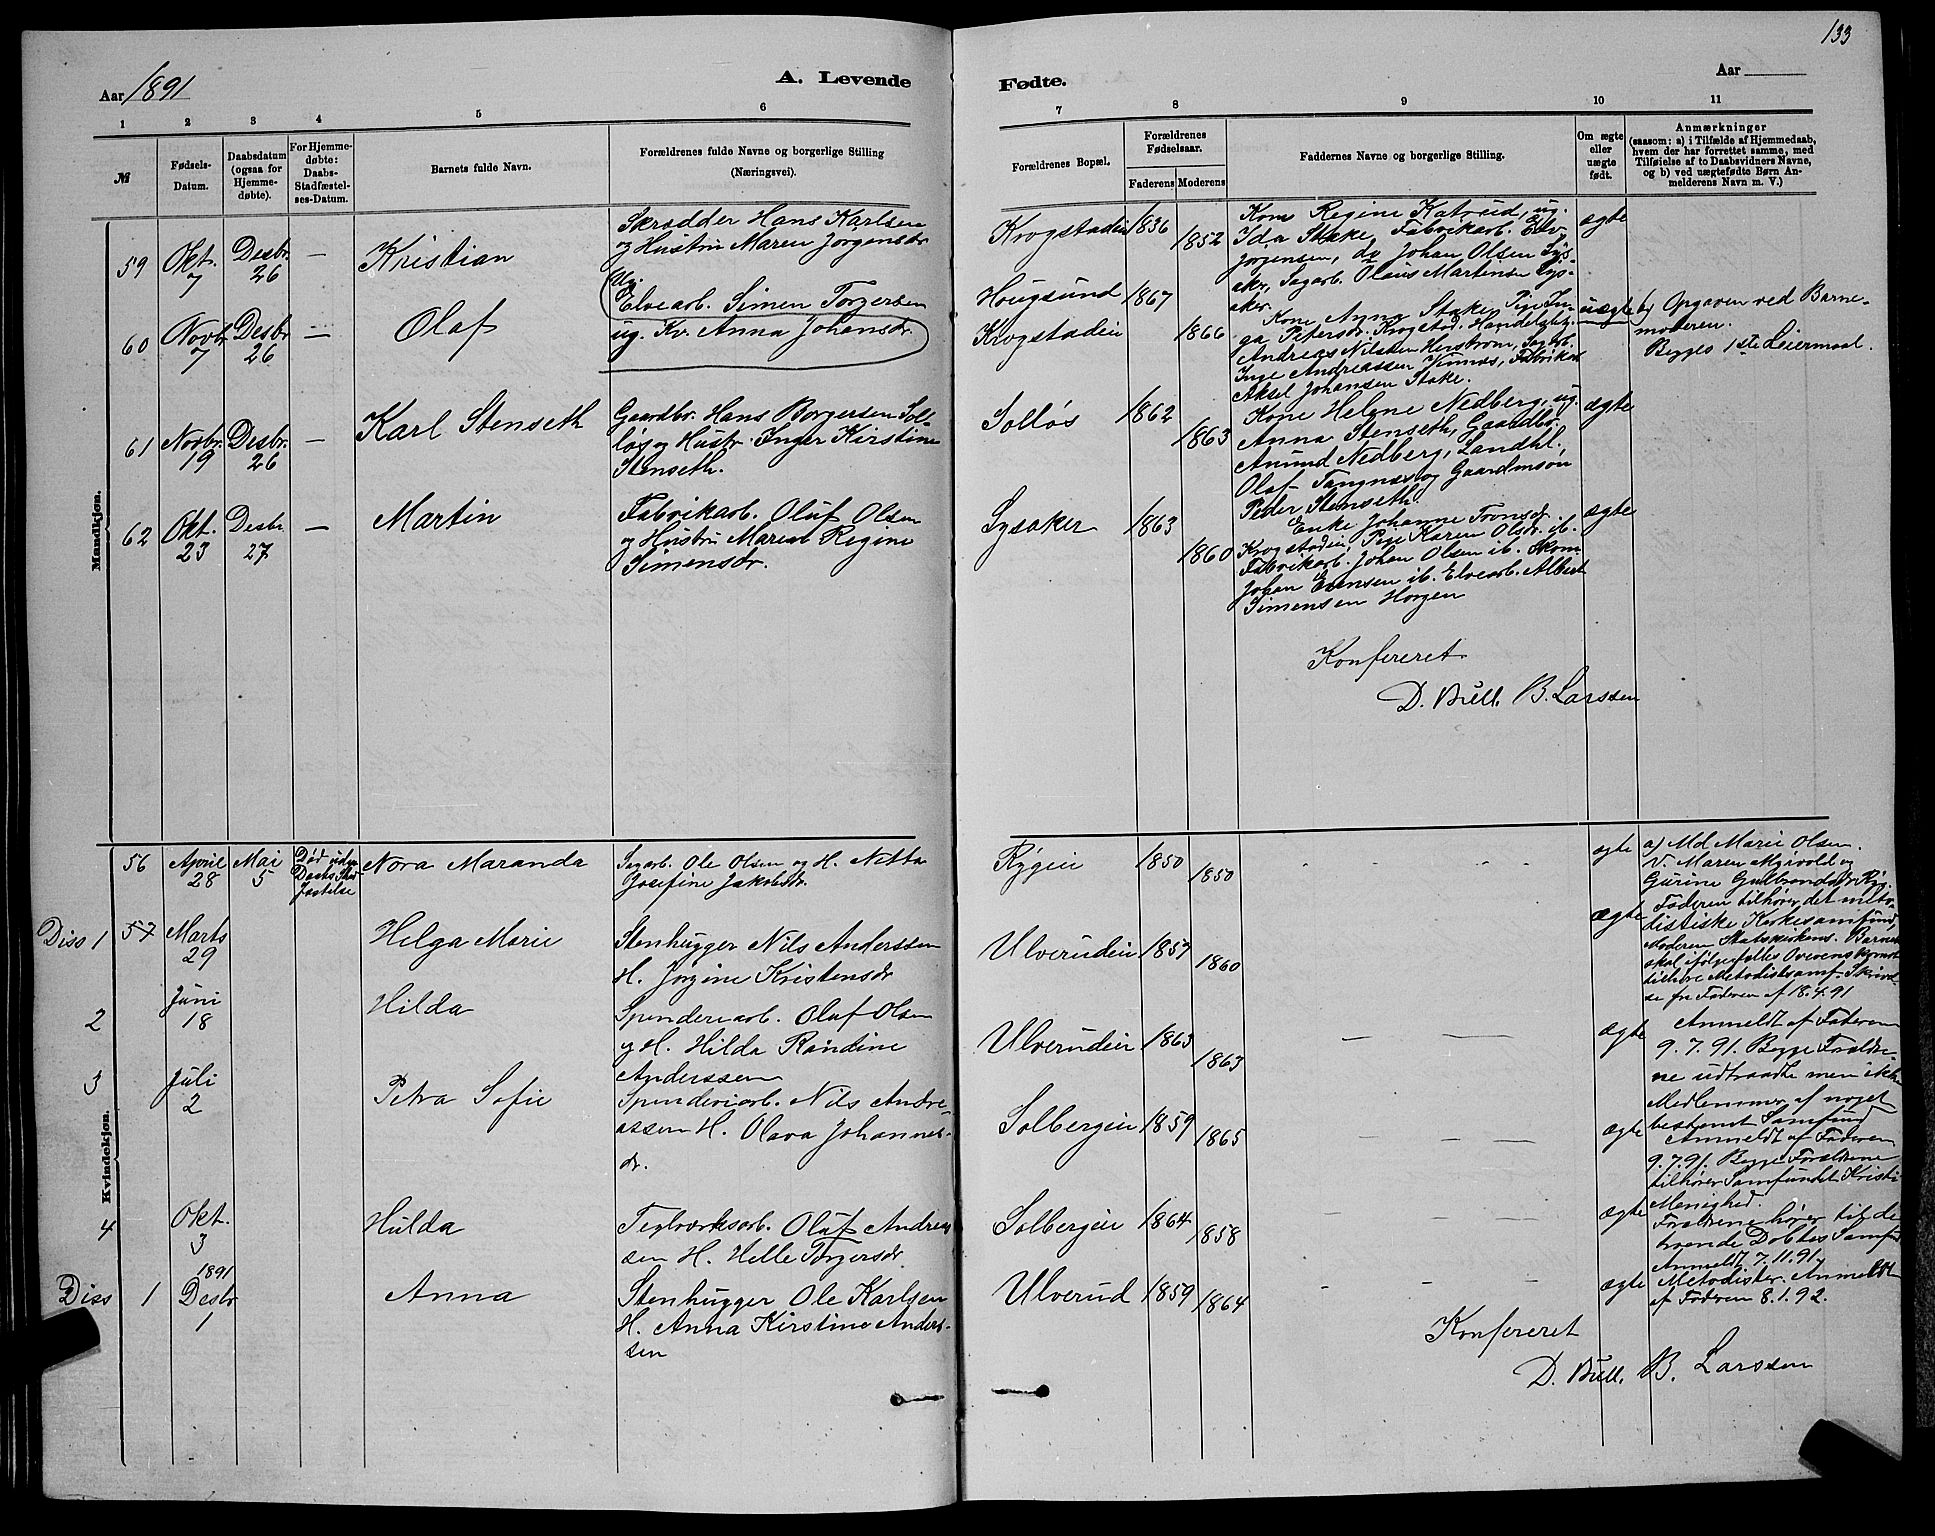 133
Aar 1891
A. Levende
Fødte.
Aar
1 2 3 4 5 6 7 8 9 10 11
№
Fødsels-
Datum.
Daabsdatum
(ogsaa for
Hjemme-
døbte).
For Hjemme-
døbte:
Daabs-
Stadfæstel-
ses-Datum.
Barnets fulde Navn.
Forældrenes fulde Navne og borgerlige Stilling
(Næringsvei).
Forældrenes Bopæl.
Forældrenes
Fødselsaar.
Faderens Moderens
Faddernes Navne og borgerlige Stilling.
Om ægte
eller
uægte
født.
Anmærkninger
(saasom: a) i Tilfælde af Hjemmedaab,
hvem der har forrettet samme, med
Tilføielse af to Daabsvidners Navne,
og b) ved uægtefødte Børn An-
melderens Navn m. V.)
Mandkjøn.
59
Okt.
7
Desbr.
26
—
Kristian
Skrædder Hans Karlsen
og Hustru Maren Jørgensdr.
Krogstadeie
1836
1852
Kone Regine Katrud, ug.
Ida Stake, Fabrikarb. Edv.
Jørgensen, do Johan Olsen Lys-
aker, Sagarb. Olaus Martinsen Lys-
aker.
ægte
60
Novbr.
7
Desbr.
26
—
Olaf
Ug.
Elvearb. Simen Torgersen
ug. Kv. Anna Johansdr.
Hougsund
Krogstadeie
1867
1866
Kone Anna Stake, Pige In-
ga Petersdr. Krogstad, Handelsbetj.
Andreas Nilsen Herstrøm, Sagarb.
Inge Andreassen Vinnæs, Fabrikarb.
Aksel Johansen Stake.
uægte
b) Opgaven ved Barne-
moderen.
Begges 1ste Leiermaal.
61
Novbr.
19
Desbr.
26
—
Karl Stenseth
Gaardbr. Hans Borgersen Sol-
løs og Hustr. Inger Kirstine
Stenseth.
Solløs
1862
1863
Kone Helene Nedberg, ug.
Anna Stenseth, Gaardbr.
Amund Nedberg, Landhl.
Olaf Tangnæs og Gaardmsøn
Peder Stenseth.
ægte
62
Okt.
23
Desbr.
27
—
Martin
Fabrikarb. Oluf Olsen
og Hustru Maren Regine
Simensdr.
Lysaker
1863
1860
Enke Johanne Tronsdr.
Krogstadeie, Pige Karen Olsdr. ib.
Fabrikarb. Johan Olsen ib. Skom.
Johan Evensen ib. Elvearb. Albert
Simensen Horgen
ægte
Konfereret
D. Bull. B. Larssen
Kvindekjøn.
56
April
28
Mai
5
Død uden
Daabs Stad-
fæstelse
Nora Maranda
Sagarb. Ole Olsen og H. Netta
Josefine Jakobsdr.
Rygeie
1850
1850
ægte
a) Md Marie Olsen.
V. Maren
Gurine Gulbrandsdr
Diss 1
57
Marts
29
Helga Marie
Stenhugger Nils Anderssen
H. Jørgine Kristensdr
Ulverudeie
1857
1860
ægte
Faderen tilhører det meto-
distiske Kirkesamfund,
Moderen Statskirkens. Barnet
skal ifølge fælles Overenskomst
tilhøre Metodistsamf. Skrivel-
se fra Faderen af 18.4.91
2
Juni
18
Hilda
Spinderiarb. Oluf Olsen
og H. Hilda Randine
Anderssen
Ulverudeie
1863
1863
ægte
Anmeldt af Faderen
9.7.91. Begge Forældre-
ne udtraadte men ikke
Medlemmer af noget
bestemt Samfund
3
Juli
2
Petra Sofie
Spinderiarb. Nils Andre-
assen H. Olava Johannes-
dr.
Solbergeie
1859
1865
ægte
Anmeldt af Faderen
9.7.91. Begge Forældrene
tilhører Samfundet Kristi
Menighed.
4
Okt.
3
Hulda
Teglværksarb. Oluf Andreas-
sen H. Helle Torgersdr
Solbergeie
1864
1858
ægte
Forældrene hører til de
troende Døbtes Samfund
Anmeldt 7.11.91.
Diss 1
1891
Desbr
1
Anna
Stenhugger Ole Karlsen
H. Anna Kirstine Anders-
sen
Ulverud
1859
1864
ægte
Metodister. Anmeldt
af Faderen 8.1.92.
Konfereret
D. Bull. B. Larssen